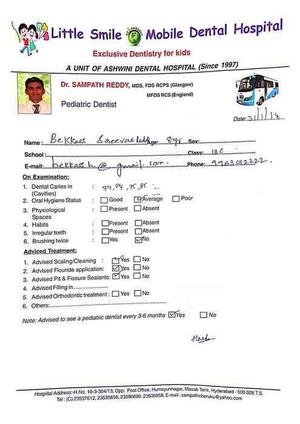 Little Smile Mobile Dental Hospital
Exclusive Dentistry for kids
A UNIT OF ASHWINI DENTAL HOSPITAL (Since 1997)
Dr. SAMPATH REDDY, MDS, FDS RCPS (Glasgow)
MFDS RCS (England)
Pediatric Dentist
Date:
Name: Age: 8yr Sex:
School: Class:
E-mail: @gmail.com Phone:
On Examination:
1. Dental Caries in (Cavities) :
2. Oral Hygiene Status : Good Average Poor
3. Physiological Spaces : Present Absent
4. Habits : Present Absent
5. Irregular teeth : Present Absent
6. Brushing twice : Yes No
Adviced Treatment:
1. Advised Scaling/Cleaning : Yes No
2. Advised Flouride application: Yes No
3. Advised Pit & Fissure Sealants: Yes No
4. Advised Filling in
5. Advised Orthodontic treatment : Yes No
6. Others:
Note: Advised to see a pediatric dentist every 3-6 months Yes No
Hospital Address: H.No. 10-3-304/13, Opp: Post Office, Humayunnagar, Masab Tank, Hyderabad - 500 028. T.S.
Tel : (C) 23537612, 23535658, 23590690, 23535858, E-mail :